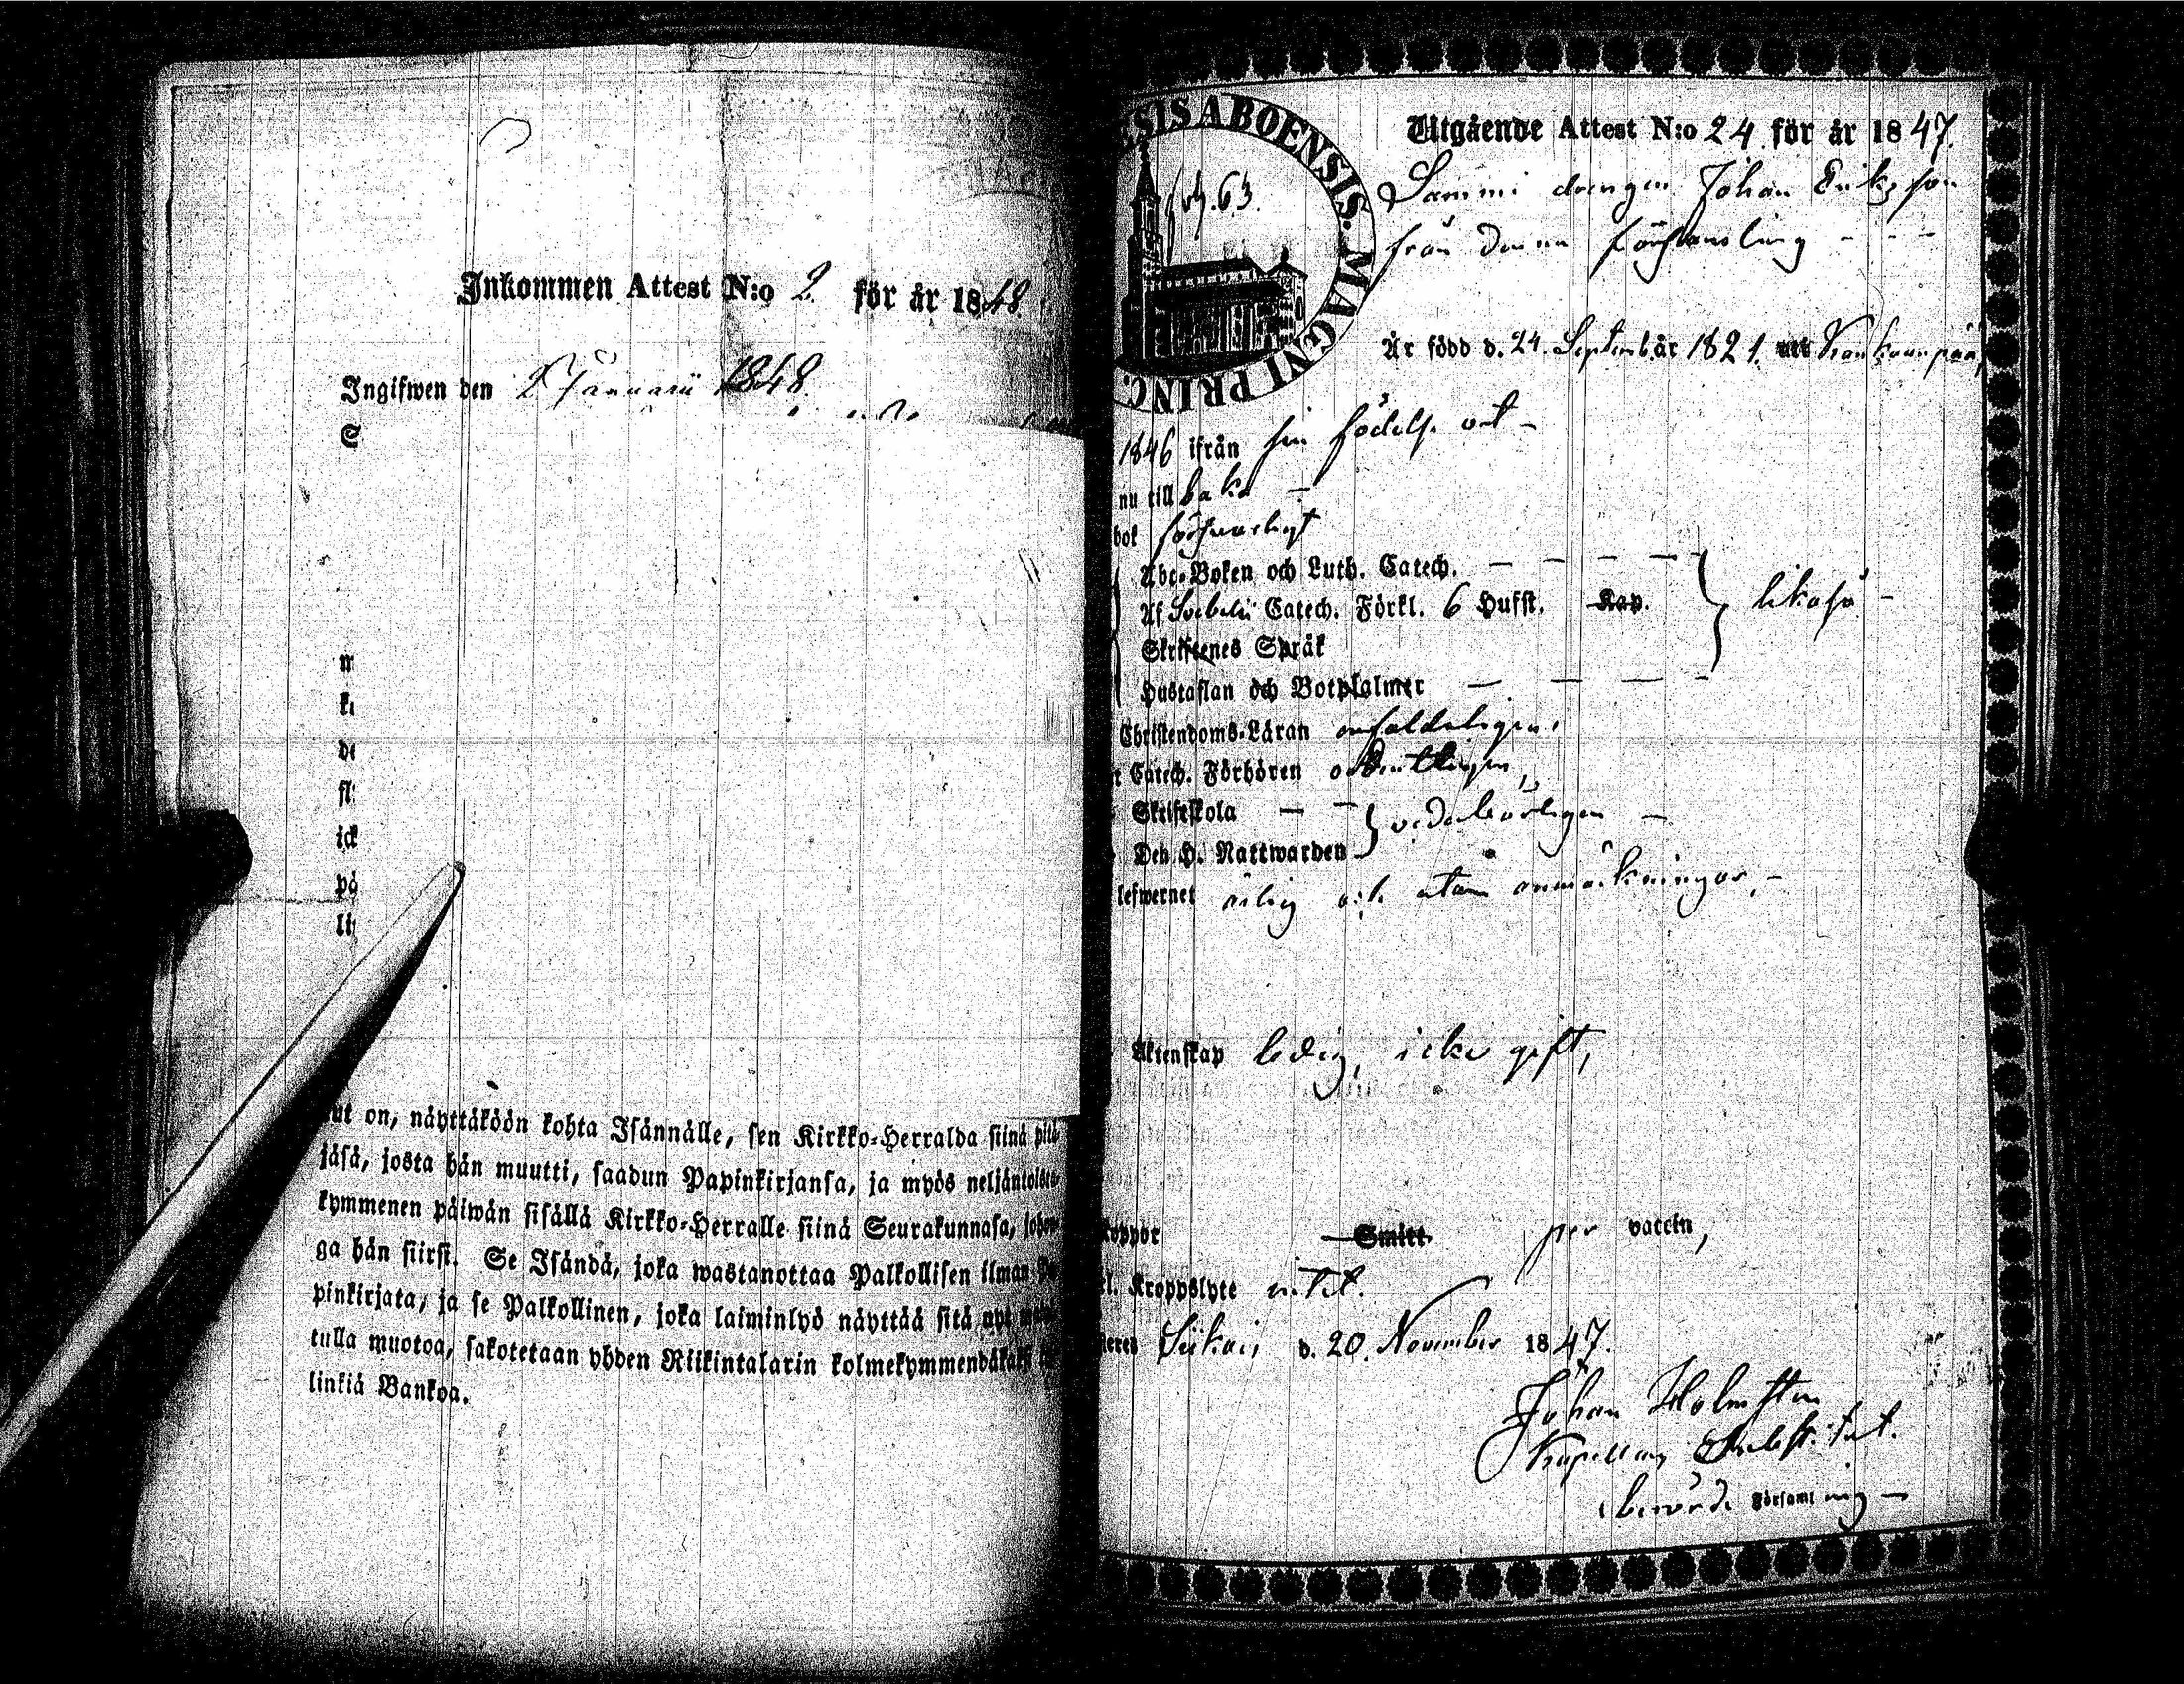 Inkommen Attest N:o 2. för år 1848
Ingifwen den 2 Januarii 1848.
S
m
ke
de
fl
ick
på
li
ut on, näyttäköön kohta Isännälle, sen Kirkko-Herralda siinä pitä
jäsä, josta hän muutti, saadun Papinkirjansa, ja myös neljäntoista
kymmenen päiwän sisällä Kirkko-Herralle siinä Seurakunnasa, johon
ga hän siirsi. Se Isändä, joka wastanottaa Palkollisen ilman Pa
pinkirjata, ja se Palkollinen, joka laiminlyö näyttää sitä nyt
tulla muotoa, sakotetaan yhden Riikintalarin kolmekymmendäkaksi
linkiä Bankoa.
ESIS ABOENSIS. MAGNI PRINC
63.
Utgående Attest N:o 24 för år 1847.
drengen Johan Eriksson
från denna församling - - -
Är född d. 24. Septemb. år 1821. uti Kankaanpää,
1846 ifrån sin födelse ort -
nu till baka -
bok försvarligt
Abc-Boken och Luth. Catech. - - - -
Af Svebelii Catech. Förkl. 6 Hufst. Kap. likaså -
Skriftenes Språk
Hustaflan och Botpsalmer - - - -
Christendoms-Läran enfaldeligen,
Catech. Förhören ordentligen,
Skriftskola - - vederbörligen -
Den H. Nattwarden
lefwernet ärlig och utan anmärkningar, -
Äktenskap ledig, icke gift,
Koppor Smitt per vaccin,
el. Kroppslyte intet.
Siikais d. 20. November 1847.
Johan Holmsten
Kapellans Substitut.
berörde Församling -